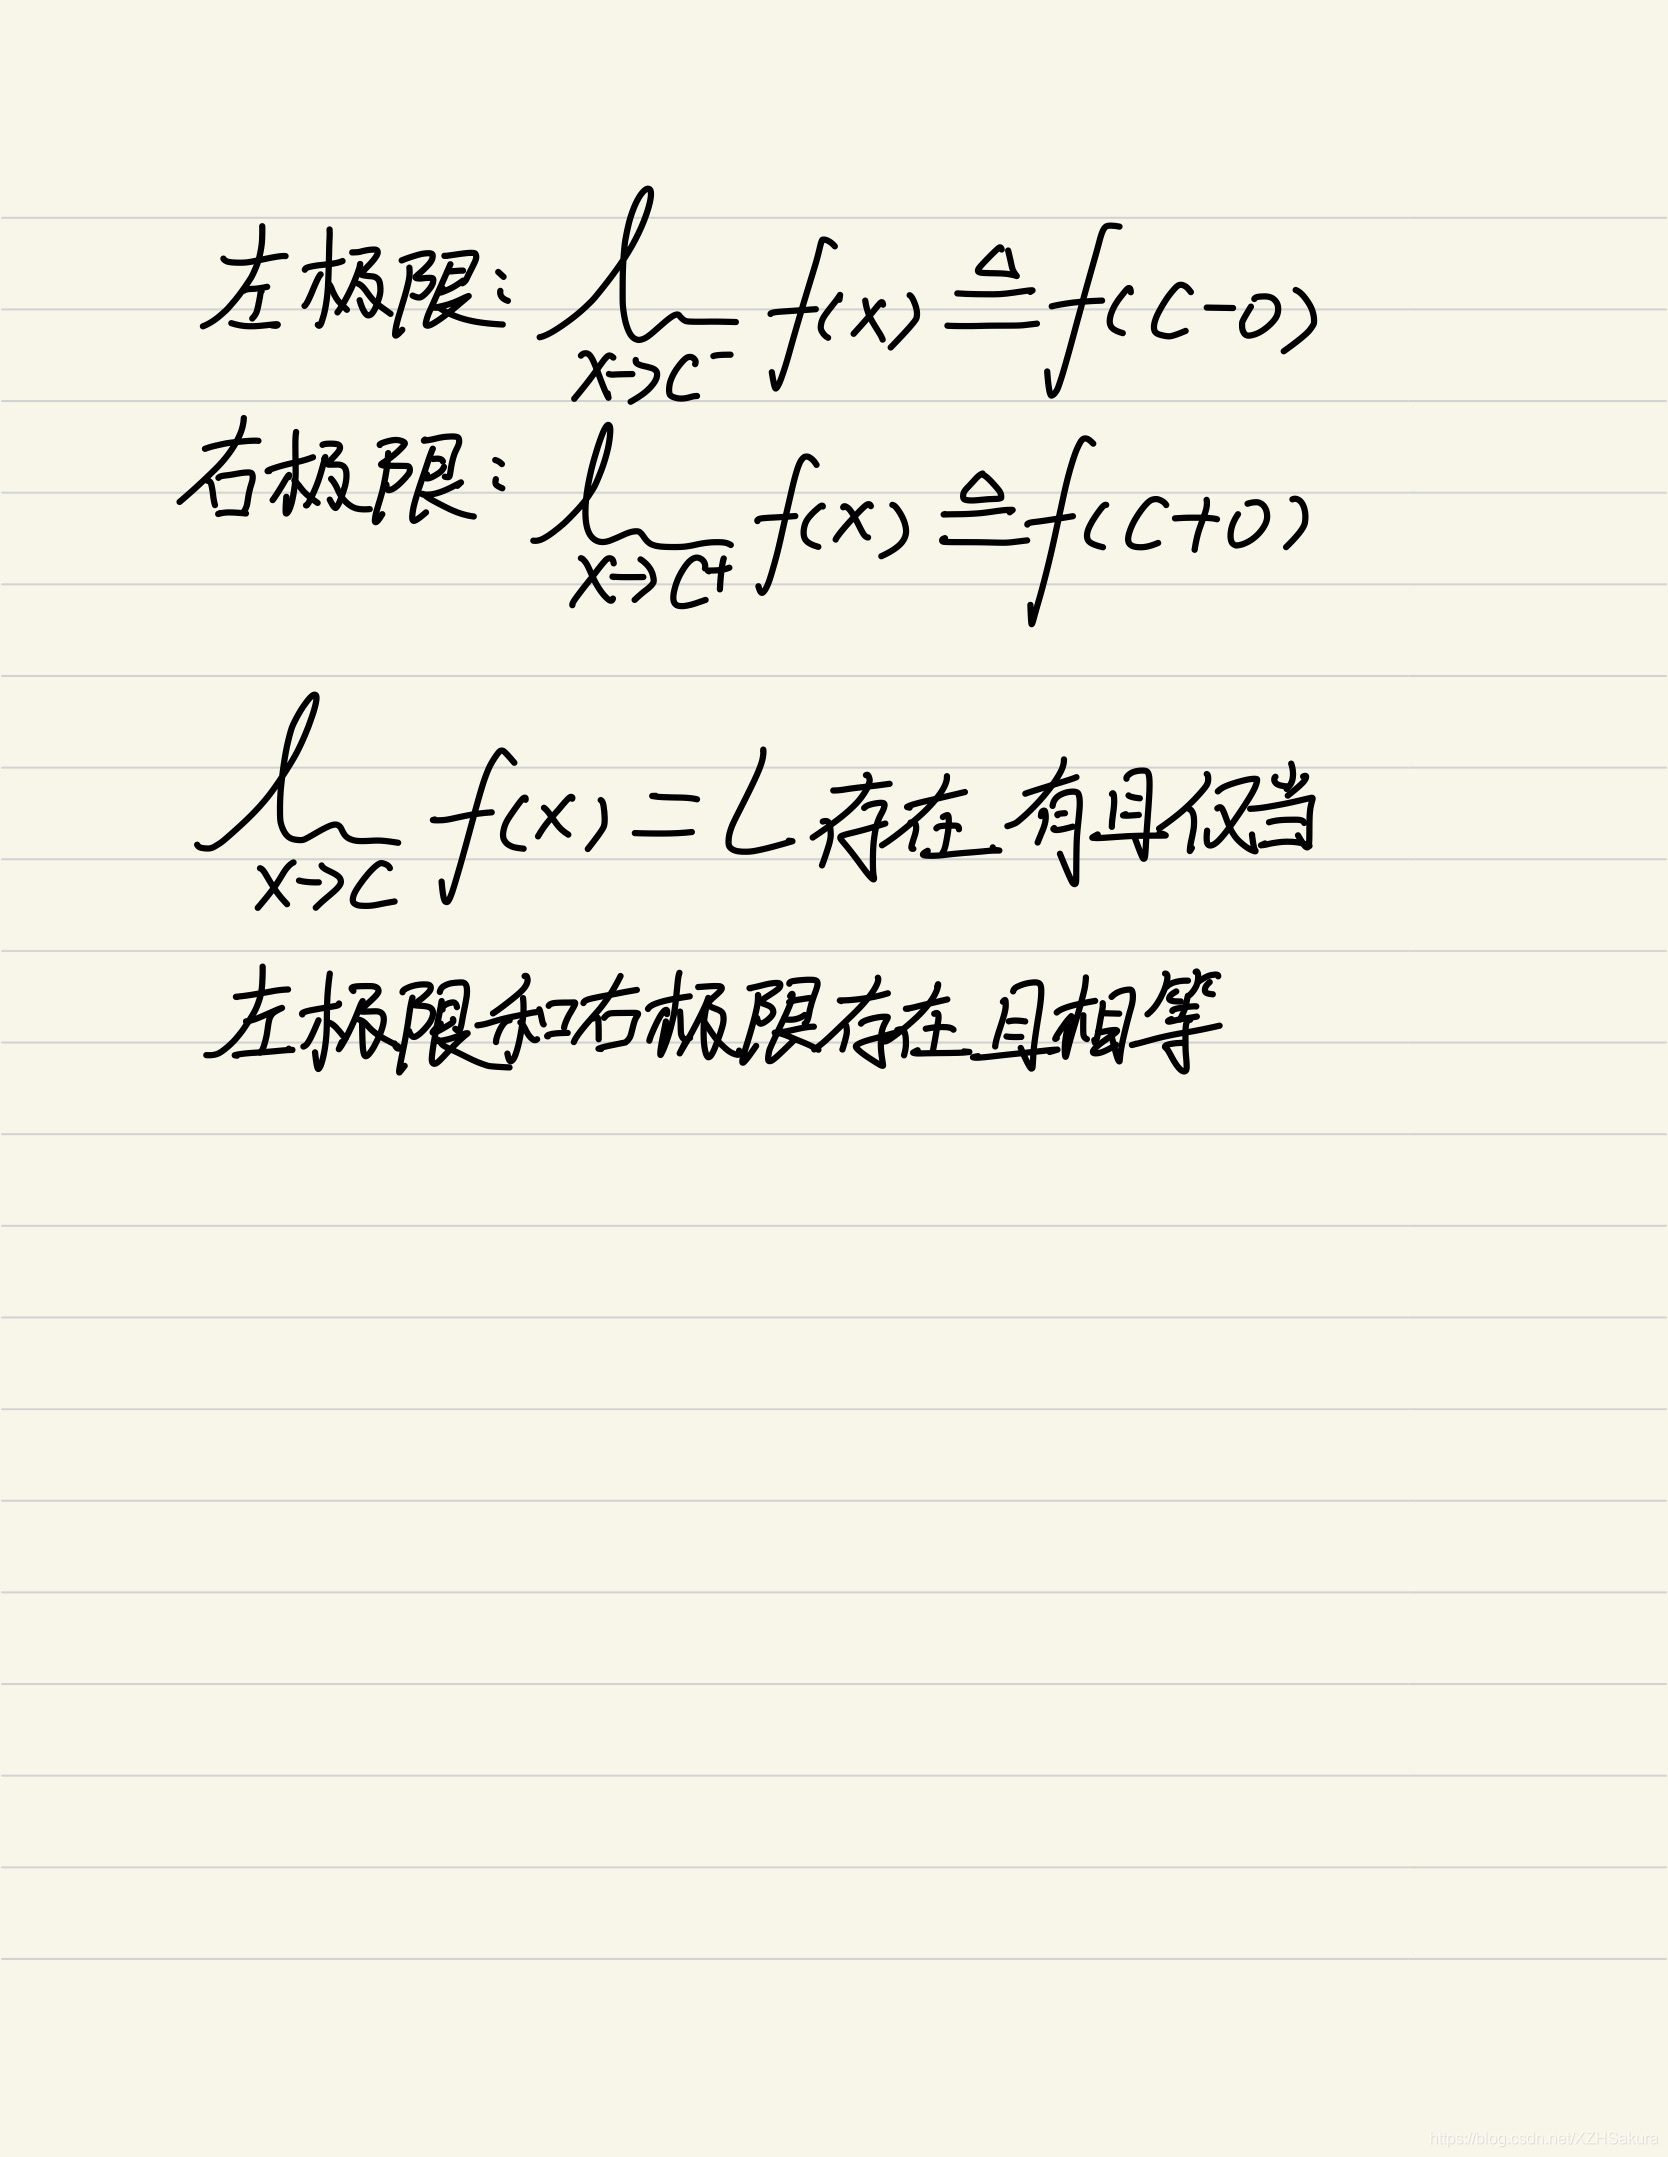 左极限: lim_{x→c⁻} f(x) ≜ f(c-0)
右极限: lim_{x→c⁺} f(x) ≜ f(c+0)
lim_{x→c} f(x) = L 存在 有且仅当
左极限和右极限存在且相等
https://blog.csdn.net/XZHSakura